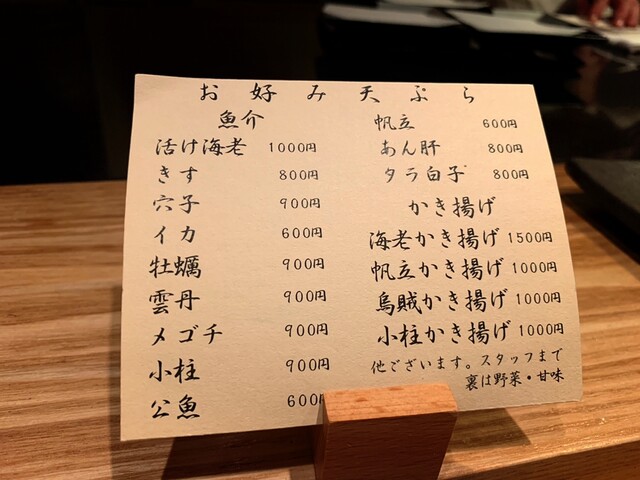 お好み天ぷら
魚介
活け海老 1000円
きす 800円
穴子 900円
イカ 600円
牡蠣 900円
雲丹 900円
メゴチ 900円
小柱 900円
公魚 600円
帆立 600円
あん肝 800円
タラ白子 800円
かき揚げ
海老かき揚げ 1500円
帆立かき揚げ 1000円
烏賊かき揚げ 1000円
小柱かき揚げ 1000円
他ございます。スタッフまで
裏は野菜・甘味